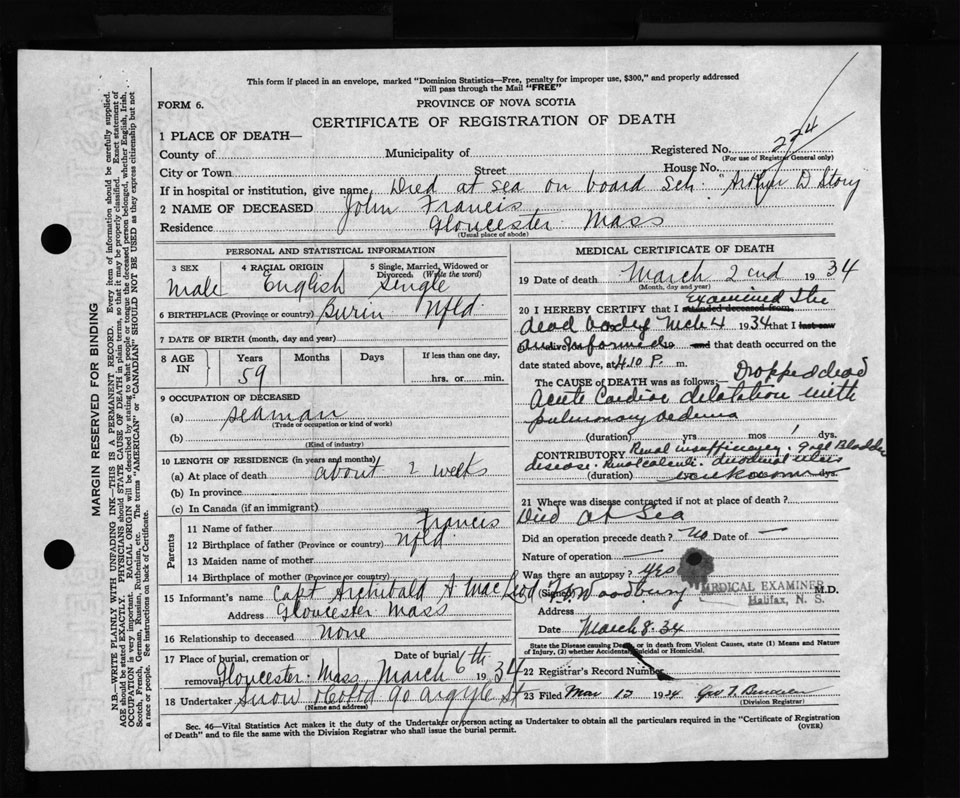 This form if placed in an envelope, marked "Dominion Statistics—Free, penalty for improper use, $300," and properly addressed
will pass through the Mail "FREE"
FORM 6.
PROVINCE OF NOVA SCOTIA
CERTIFICATE OF REGISTRATION OF DEATH
1 PLACE OF DEATH—
County of Municipality of Registered No. 224
(For use of Registrar General only)
City or Town Street House No.
If in hospital or institution, give name, Died at sea on board Sch. "Arthur D Story
2 NAME OF DECEASED John Francis
Residence Gloucester Mass
(Usual place of abode)
PERSONAL AND STATISTICAL INFORMATION
3 SEX 4 RACIAL ORIGIN 5 Single, Married, Widowed or
Divorced. (Write the word)
Male English Single
6 BIRTHPLACE (Province or country) Burin Nfld.
7 DATE OF BIRTH (month, day and year)
8 AGE IN Years Months Days If less than one day,
59 hrs. or min.
9 OCCUPATION OF DECEASED
(a) Seaman
(Trade or occupation or kind of work)
(b)
(Kind of industry)
10 LENGTH OF RESIDENCE (in years and months)
(a) At place of death about 2 weeks
(b) In province
(c) In Canada (if an immigrant)
Parents
11 Name of father Francis
12 Birthplace of father (Province or country) Nfld.
13 Maiden name of mother
14 Birthplace of mother (Province or country)
15 Informant's name Capt Archibald A MacLeod
Address Gloucester Mass
16 Relationship to deceased None
17 Place of burial, cremation or removal Date of burial
Gloucester Mass, March 6th 1934
18 Undertaker Snow & Co Ltd 90 Argyle St
(Name and address)
MEDICAL CERTIFICATE OF DEATH
19 Date of death March 2nd 1934
(Month, day and year)
20 I HEREBY CERTIFY that I attended deceased from examined the
dead body Mch 4 1934 that I last saw
and that death occurred on the
date stated above, at 4.10 P. m.
The CAUSE of DEATH was as follows:— Dropped dead
Acute Cardiac dilatation with
pulmonary oedema
(duration) yrs mos dys.
CONTRIBUTORY Renal insufficiency. Gall Bladder
disease. Renal calculi. duodenal ulcer
(duration) unknown dys.
21 Where was disease contracted if not at place of death?
Died at Sea
Did an operation precede death? no Date of —
Nature of operation —
Was there an autopsy? Yes
(Signed) Woodbury M.D.
MEDICAL EXAMINER
Halifax, N. S.
Address
Date March 8. 34
State the Disease causing Death, or in death from Violent Causes, state (1) Means and Nature
of Injury, (2) whether Accidental, Suicidal or Homicidal.
22 Registrar's Record Number
23 Filed Mar 12 1934
(Division Registrar)
Sec. 46—Vital Statistics Act makes it the duty of the Undertaker or person acting as Undertaker to obtain all the particulars required in the "Certificate of Registration
of Death" and to file the same with the Division Registrar who shall issue the burial permit.
(OVER)
MARGIN RESERVED FOR BINDING
N.B.—WRITE PLAINLY WITH UNFADING INK—THIS IS A PERMANENT RECORD. Every item of information should be carefully supplied.
AGE should be stated EXACTLY. PHYSICIANS should STATE CAUSE OF DEATH in plain terms, so that it may be properly classified. Exact statement of
OCCUPATION is very important. RACIAL ORIGIN will be described by stating to what people or tongue the deceased person belonged, whether English, Irish,
Scotch, French, German, Russian, Ruthenian, etc. The terms "AMERICAN" or "CANADIAN" SHOULD NOT BE USED as they express citizenship but not
a race or people. See instructions on back of Certificate.